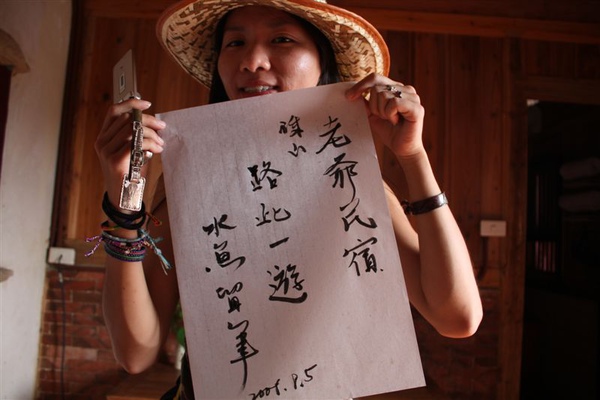 老爺民宿
珠山
路此一遊
水魚留筆
2008.9.5